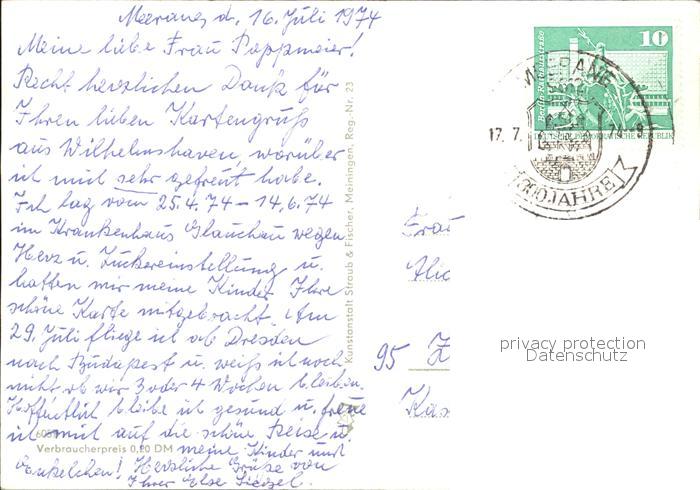 Meerane, d. 16. Juli 1974
Meine liebe Frau Poppmeier!
Recht herzlichen Dank für
Ihren lieben Kartengruß
aus Wilhelmshaven, worüber
ich mich sehr gefreut habe.
Ich lag vom 25.4.74 – 14.6.74
im Krankenhaus Glauchau wegen
Herz u. Zuckereinstellung u.
hatten mir meine Kinder Ihre
schöne Karte mitgebracht. Am
29. Juli fliege ich ab Dresden
nach Budapest u. weiß ich noch
nicht, ob wir 3 oder 4 Wochen bleiben.
Hoffentlich bleibe ich gesund u. freue
ich mich auf die schöne Reise u.
meine Kinder und
Enkelchen! Herzliche Grüße von
Ihrer Else
Verbraucherpreis 0,20 DM
Kunstanstalt Straub & Fischer, Meiningen, Reg.-Nr. 23
10
Berlin Rathausstraße
DEUTSCHE DEMOKRATISCHE REPUBLIK
MEERANE
17. 7.
JAHRE
Frau
95
privacy protection
Datenschutz